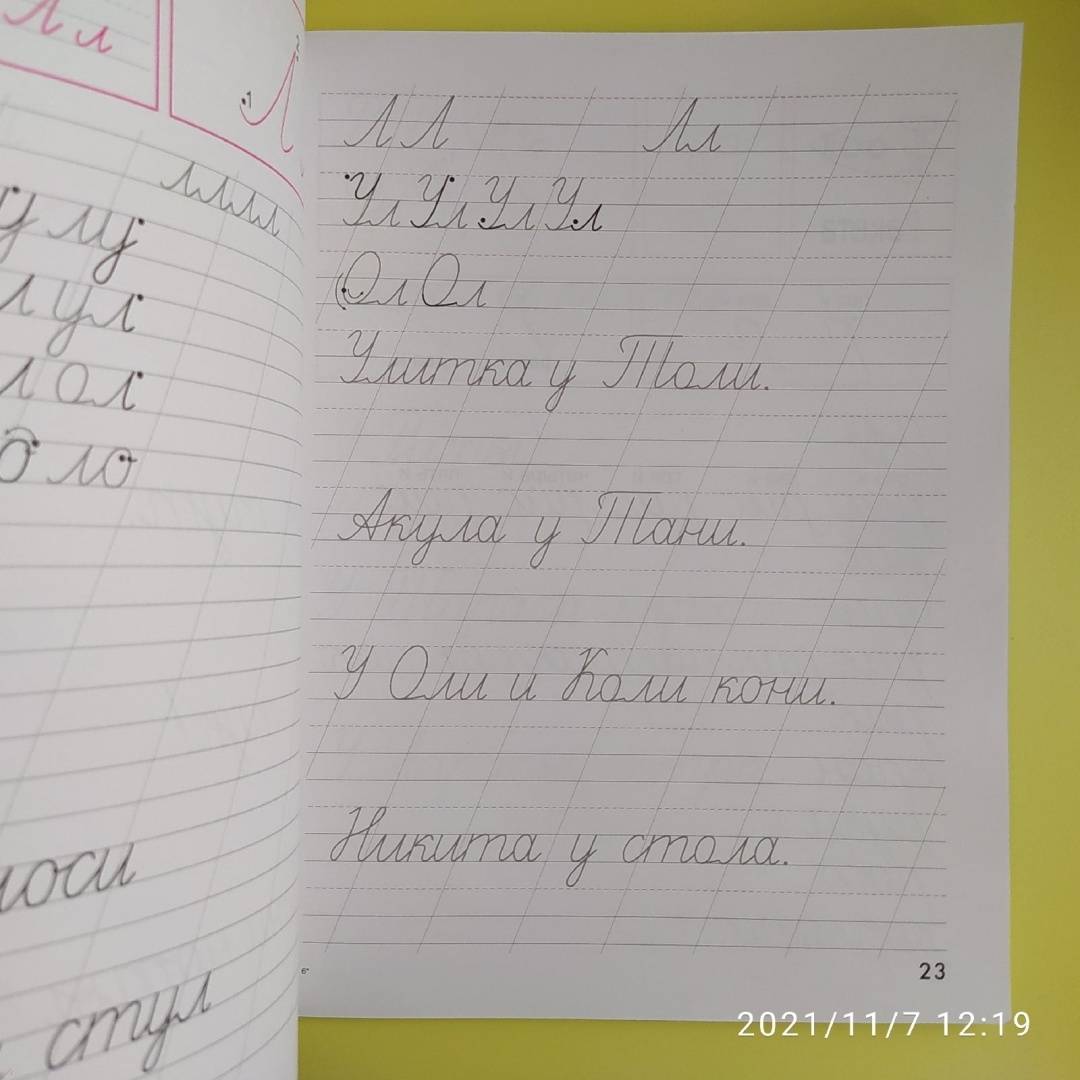 Л л
1
2
л л л л
у лу
лул
лол
о ло
стул
Л Л Л л
Ул Ул Ул Ул
Ол Ол
Улитка у Толи.
Акула у Тани.
У Оли и Коли кони.
Никита у стола.
23
2021/11/7 12:19